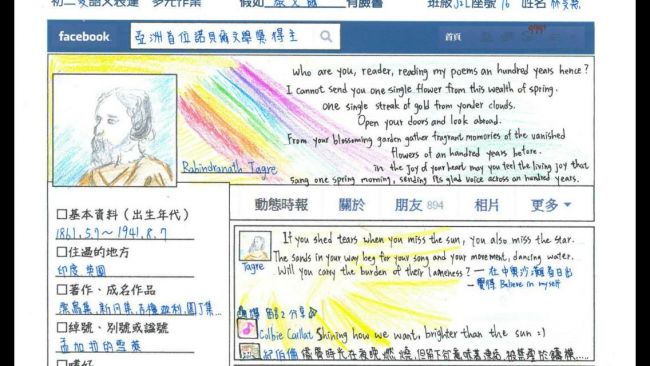 初二 語文表達 多元作業 假如 有臉書 班級 座號 16 姓名
facebook 亞洲首位諾貝爾文學獎得主 首頁
Who are you, reader, reading my poems an hundred years hence?
I cannot send you one single flower from this wealth of spring.
one single streak of gold from yonder clouds.
Open your doors and look abroad.
From your blossoming garden gather fragrant memories of the vanished
flowers of an hundred years before.
in the joy of your heart may you feel the living joy that
sang one spring morning, sending its glad voice across an hundred years.
Rabindranath Tagre
動態時報 關於 朋友 894 相片 更多
□基本資料（出生年代）
1861.5.7~1941.8.7
□住過的地方
印度 英國
□著作、成名作品
漂鳥集、新月集、吉檀迦利、園丁集...
□綽號、別號或謚號
孟加拉的雪萊
□嗜好
If you shed tears when you miss the sun, you also miss the star.
The sands in your way beg for your song and your movement, dancing water.
Will you carry the burden of their lameness? — 在中奧沙灘看日出
Tagre
— 覺得 Believe in myself
Colbie Caillat Shining how we want, brighter than the sun :)
紀伯倫 儘管時光在夜晚燃燒,但留下